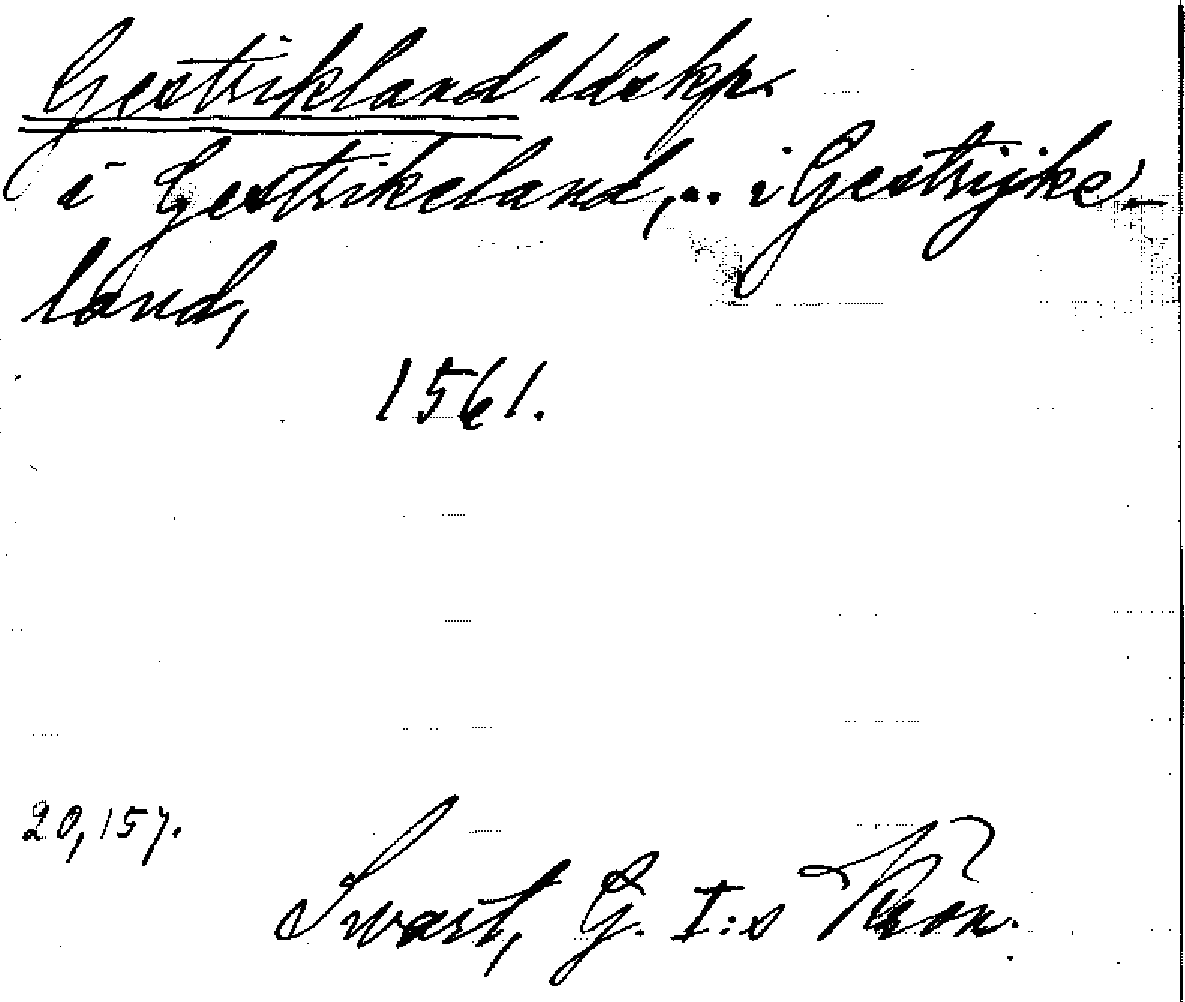 Gestrikland ldskp.
i Gestrikeland,.. i Gestrijke-
land,
1561.
20,157.
Swart, G. I:s Krön.